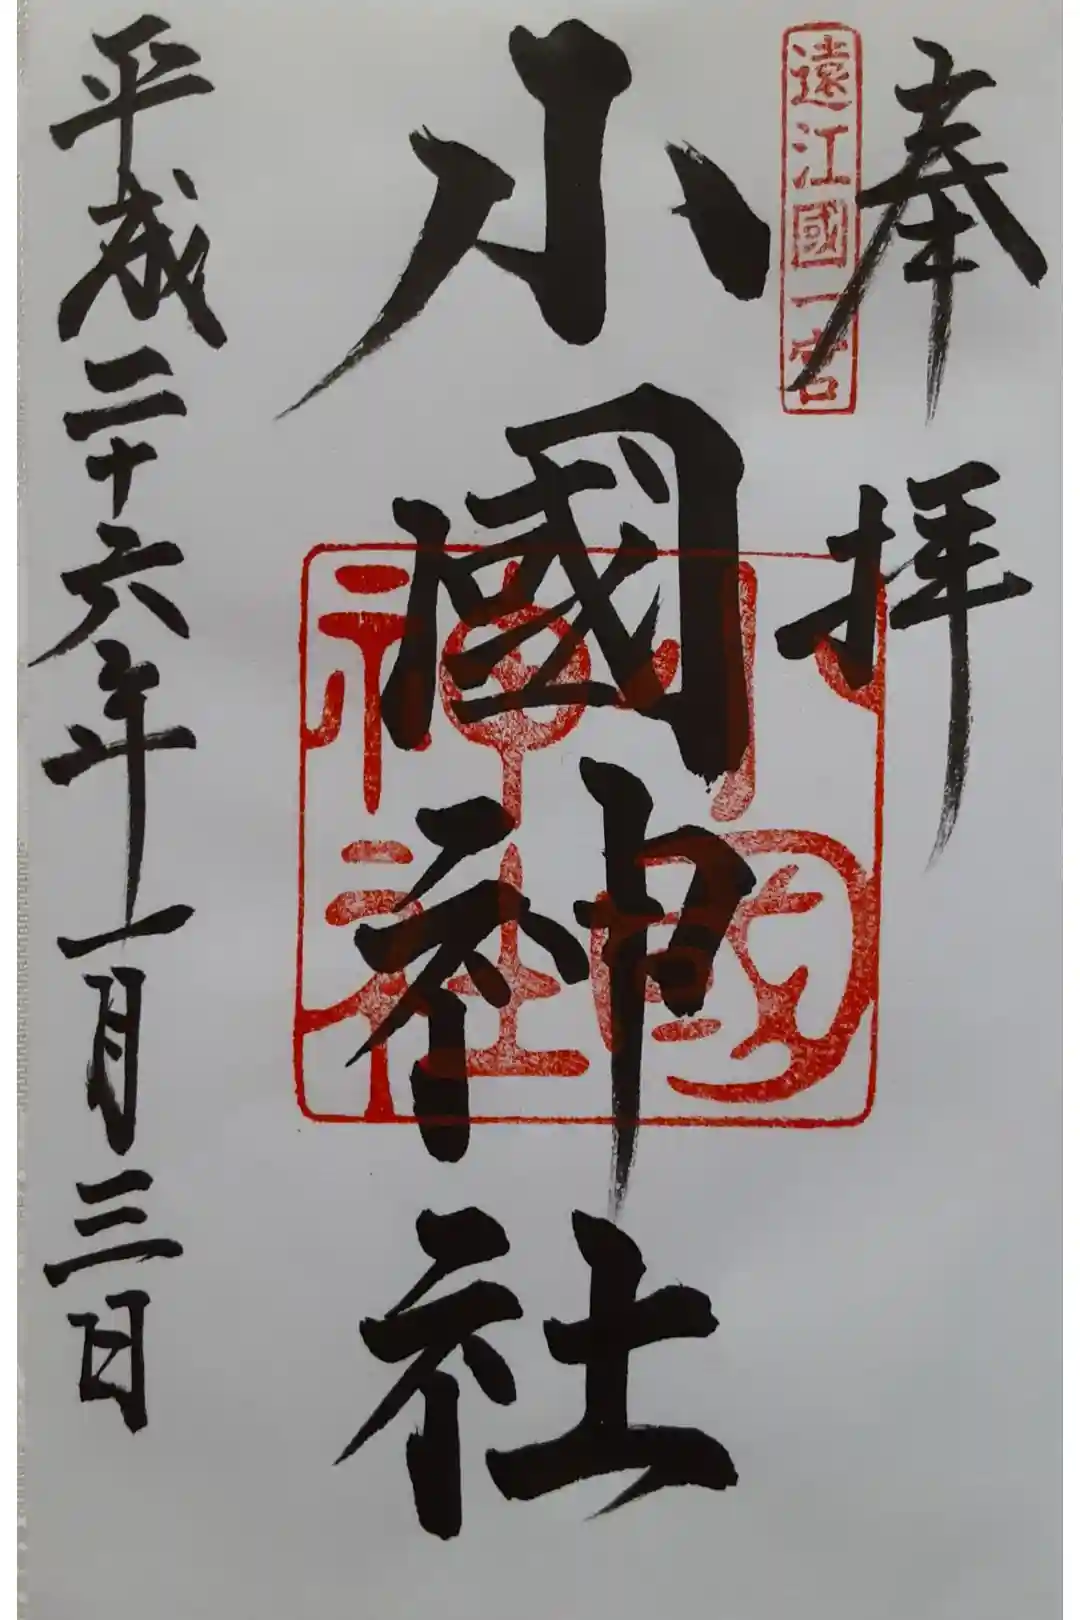 奉拝
遠江國一宮
小國神社
小國
神社
平成二十六年一月三日